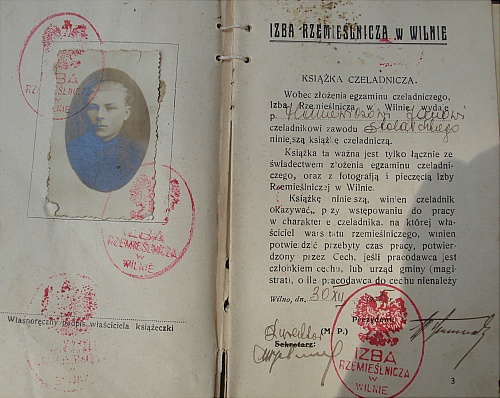 IZBA
RZEMIEŚLNICZA
w
WILNIE
IZBA
RZEMIEŚLNICZA
w
WILNIE
Własnoręczny podpis właściciela książeczki
IZBA RZEMIEŚLNICZA w WILNIE
KSIĄŻKA CZELADNICZA.
Wobec złożenia egzaminu czeladniczego,
Izba Rzemieślnicza w Wilnie wydaje
p.
czeladnikowi zawodu Stolarskiego
niniejszą książkę czeladniczą.
Książka ta ważna jest tylko łącznie ze
świadectwem złożenia egzaminu czeladni-
czego, oraz z fotografją i pieczęcią Izby
Rzemieślniczej w Wilnie.
Książkę niniejszą, winien czeladnik
okazywać, przy wstępowaniu do pracy
w charakterze czeladnika, na której wła-
ściciel warsztatu rzemieślniczego, winien
potwierdzić przebyty czas pracy, potwier-
dzony przez Cech, jeśli pracodawca jest
członkiem cechu, lub urząd gminy (magi-
strat), o ile pracodawca do cechu nienależy
Wilno, dn. 30 XII
Prezydent:
Dyrektor (M. P.)
Sekretarz:
IZBA
RZEMIEŚLNICZA
w
WILNIE
3